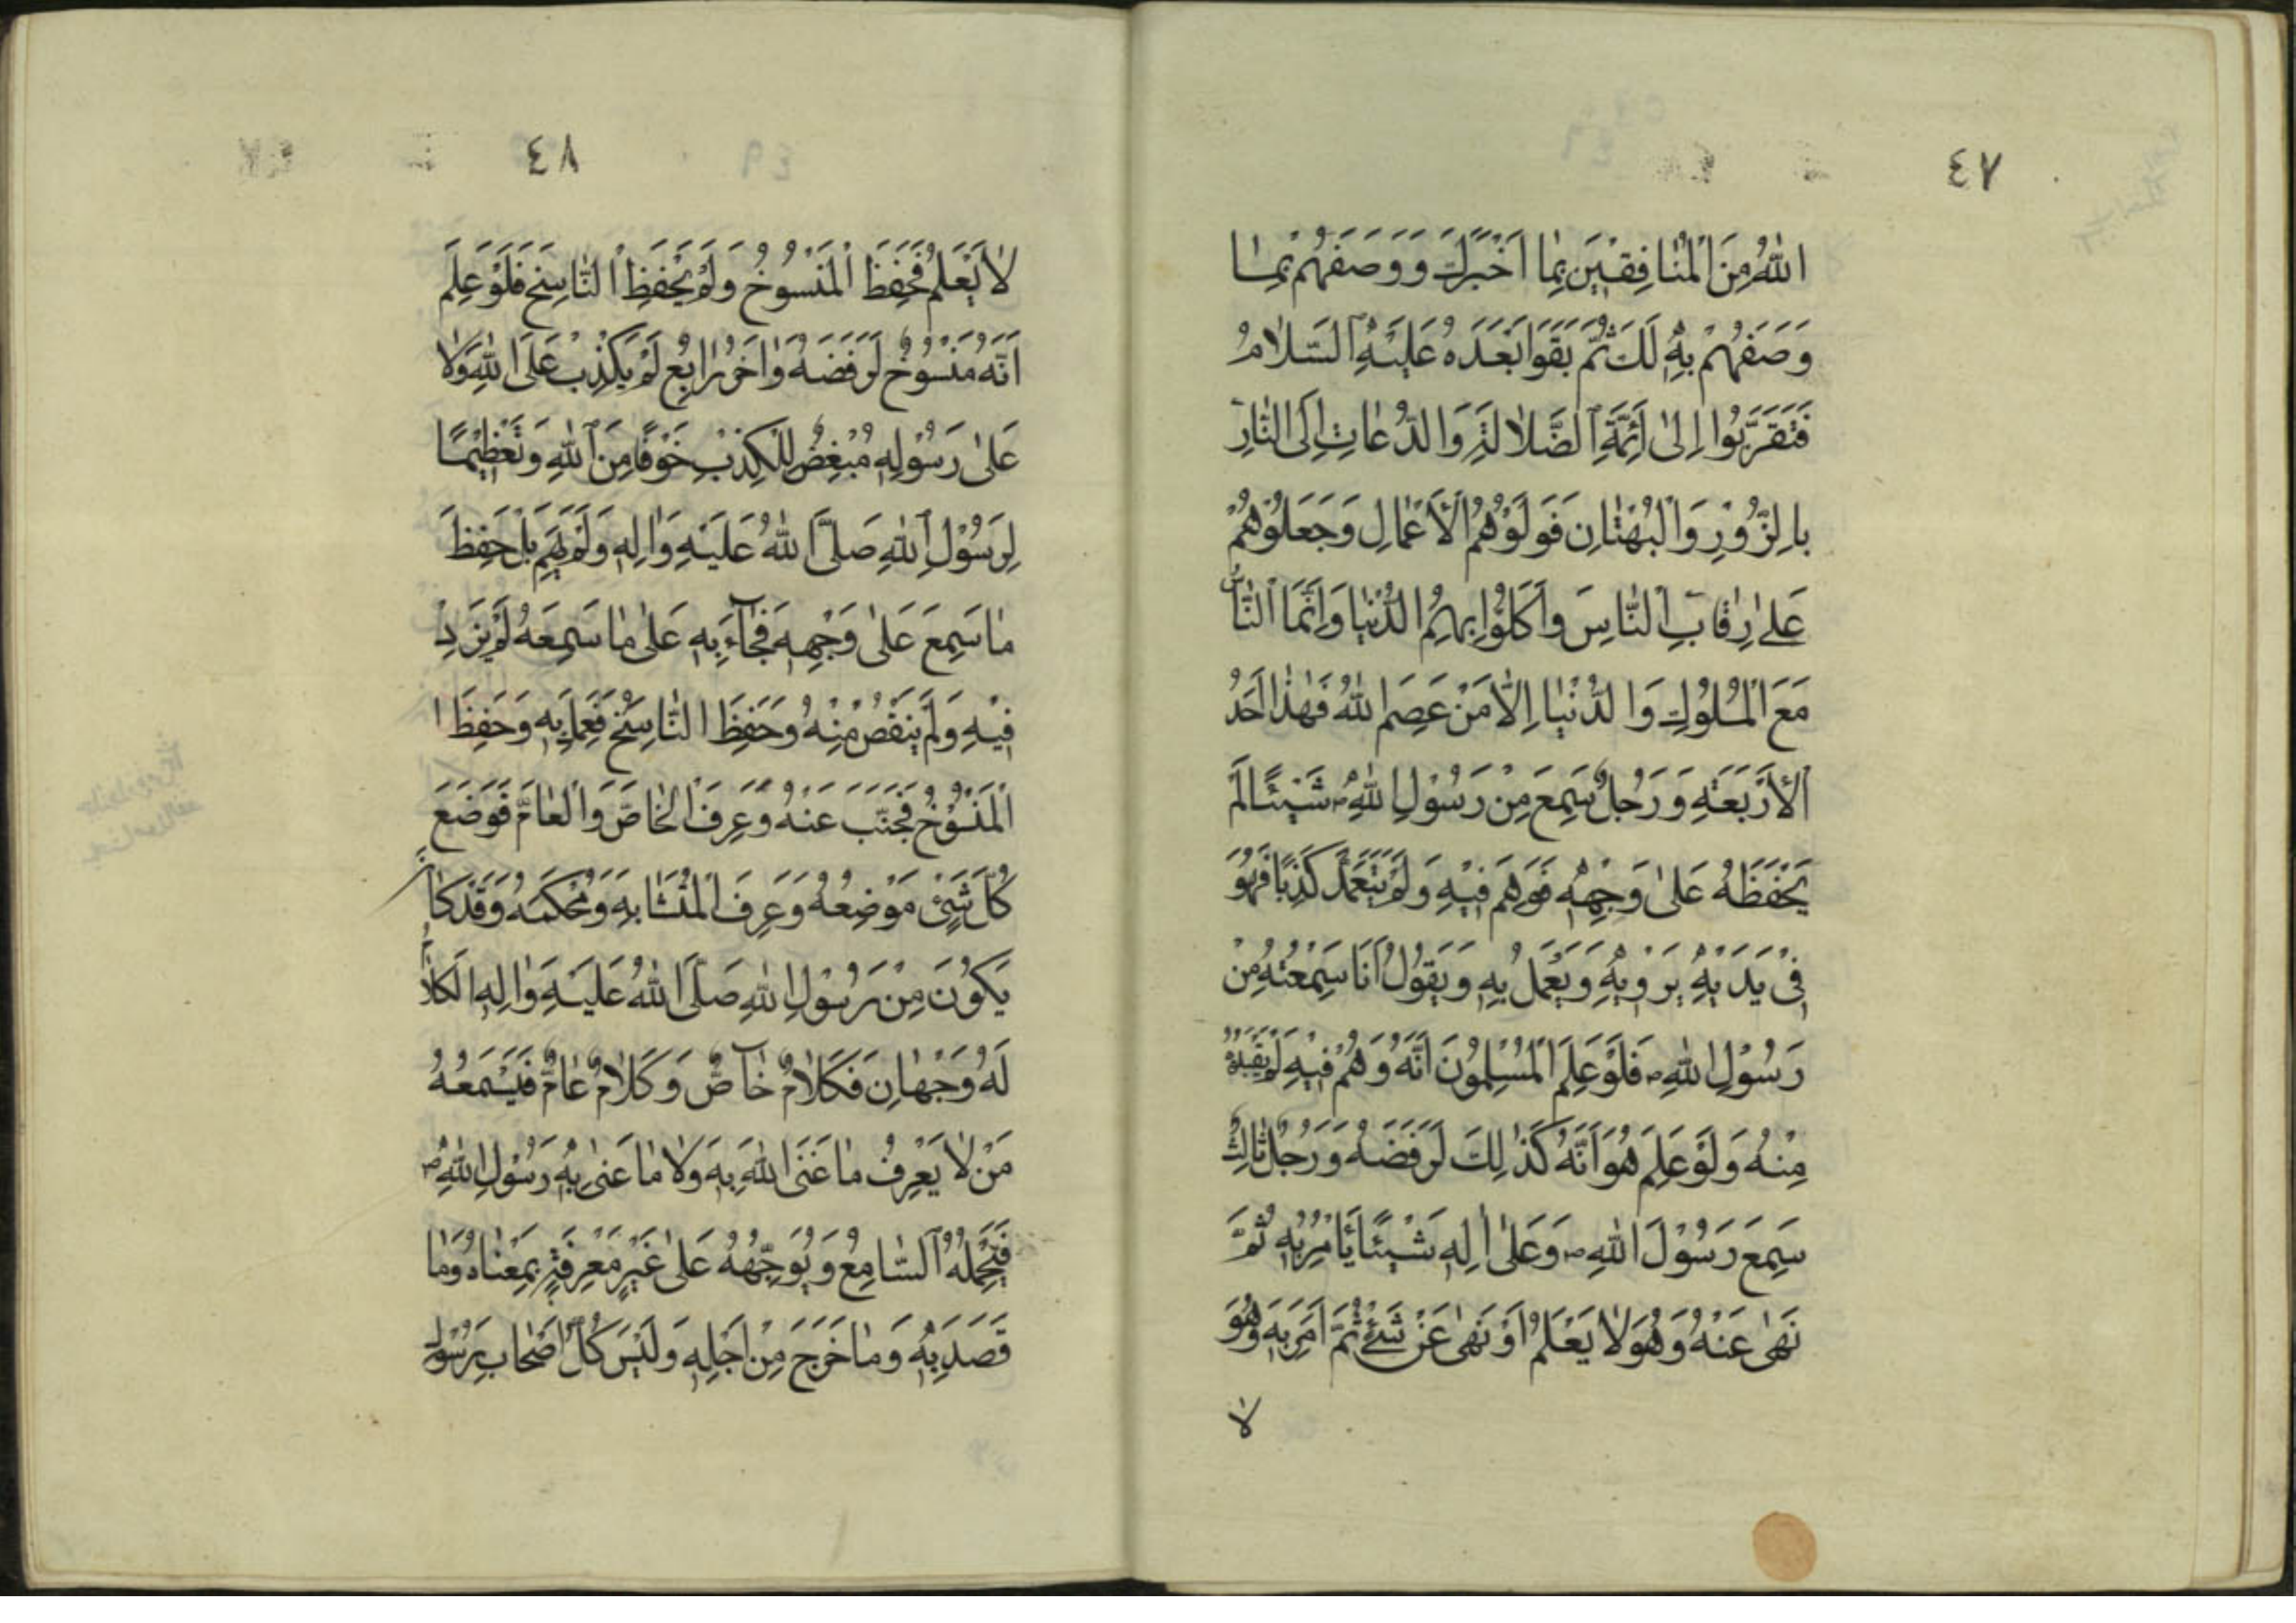 ٤٧
اللهُ مِنَ الْمُنَافِقِيْنَ بِمَا اَخْبَرَكَ وَ وَصَفَهُمْ بِمَا
وَصَفَهُمْ بِهِ لَكَ ثُمَّ بَقَوْا بَعْدَهُ عَلَيْهِ السَّلَامُ
فَتَقَرَّبُوا اِلىٰ اَئِمَّةِ الضَّلَالَةِ وَالدُّعَاتِ اِلَى النَّارِ
بِالزُّوْرِ وَالْبُهْتَانِ فَوَلَّوْهُمُ الْاَعْمَالِ وَجَعَلُوْهُمْ
عَلىٰ رِقَابِ النَّاسَ وَاَكَلُوْا بِهِمُ الدُّنْيَا وَاِنَّمَا النَّاسُ
مَعَ الْمُلُوْكِ وَالدُّنْيَا اِلَّا مَنْ عَصِمَ اللهُ فَهٰذَا اَحَدُ
الْاَرْبَعَةِ وَرَجُلٌ سَمِعَ مِنْ رَسُوْلِ اللهِ ص شَيْئًا لَمْ
يَحْفَظْهُ عَلىٰ وَجْهِهِ فَوَهَمَ فِيْهِ وَلَمْ يَتَعَمَّدْ كَذِبًا فَهُوَ
فِىْ يَدَيْهِ يَرْوِيْهِ وَيَعْمَلُ بِهِ وَيَقُوْلُ اَنَا سَمِعْتُهُ مِنْ
رَسُوْلِ اللهِ ص فَلَوْ عَلِمَ الْمُسْلِمُوْنَ اَنَّهُ وَهُمْ فِيْهِ لَمْ يَقْبَلُوْهُ
مِنْهُ وَلَوْ عَلِمَ هُوَ اَنَّهُ كَذٰلِكَ لَرَفَضَهُ وَرَجُلٌ ثَالِثٌ
سَمِعَ رَسُوْلَ اللهِ ص وَعَلىٰ اٰلِهِ شَيْئًا يَأْمُرُ بِهِ ثُمَّ
نَهىٰ عَنْهُ وَهُوَ لَا يَعْلَمُ اَوْ نَهىٰ عَنْ شَىْءٍ ثُمَّ اَمَرَ بِهِ وَهُوَ
لا
٤٨
لَا يَعْلَمُ فَحَفِظَ الْمَنْسُوْخُ وَلَمْ يَحْفَظِ النَّاسِخَ فَلَوْ عَلِمَ
اَنَّهُ مَنْسُوْخٌ لَرَفَضَهُ وَاٰخَرُ رَابِعٌ لَمْ يَكْذِبْ عَلَى اللهِ وَلَا
عَلىٰ رَسُوْلِهِ مُبْغِضٌ لِلْكِذْبِ خَوْفًا مِنَ اللهِ وَتَعْظِيْمًا
لِرَسُوْلِ اللهِ صَلَّى اللهُ عَلَيْهِ وَاٰلِهِ وَلَمْ يَهِمْ بَلْ حَفِظَ
مَا سَمِعَ عَلىٰ وَجْهِهِ فَجَآءَ بِهِ عَلىٰ مَا سَمِعَهُ لَمْ يَزِدْ
فِيْهِ وَلَمْ يَنْقُصْ مِنْهُ وَحَفِظَ النَّاسِخَ فَعَمِلَ بِهِ وَحَفِظَ ا
الْمَنْسُوْخَ فَجَنَّبَ عَنْهُ وَعَرِفَ الْخَاصَّ وَالْعَامَّ فَوَضَعَ
كُلَّ شَيْئٍ مَوْضِعُهُ وَعَرِفَ الْمُتَشَابِهَ وَمُحْكَمَهُ وَقَدْ كَانَ
يَكُوْنَ مِنْ رَسُوْلِ اللهِ صَلَّى اللهُ عَلَيْهِ وَاٰلِهِ الْكَلَامُ
لَهُ وَجْهَانِ فَكَلَامٌ خَآصٌّ وَكَلَامٌ عَامٌّ فَيَسْمَعُهُ
مَنْ لَا يَعْرِفُ مَا عَنَى اللهُ بِهِ وَلَا مَا عَنىٰ بِهِ رَسُوْلُ اللهِ ص
فَيَحْمِلُهُ السَّامِعُ وَيُوَجِّهُهُ عَلىٰ غَيْرِ مَعْرِفَةٍ بِمَعْنَاهُ وَمَا
قَصَدَ بِهِ وَمَا خَرَجَ مِنْ اَجْلِهِ وَلَيْسَ كُلُّ اَصْحَابِ رَسُوْلِ